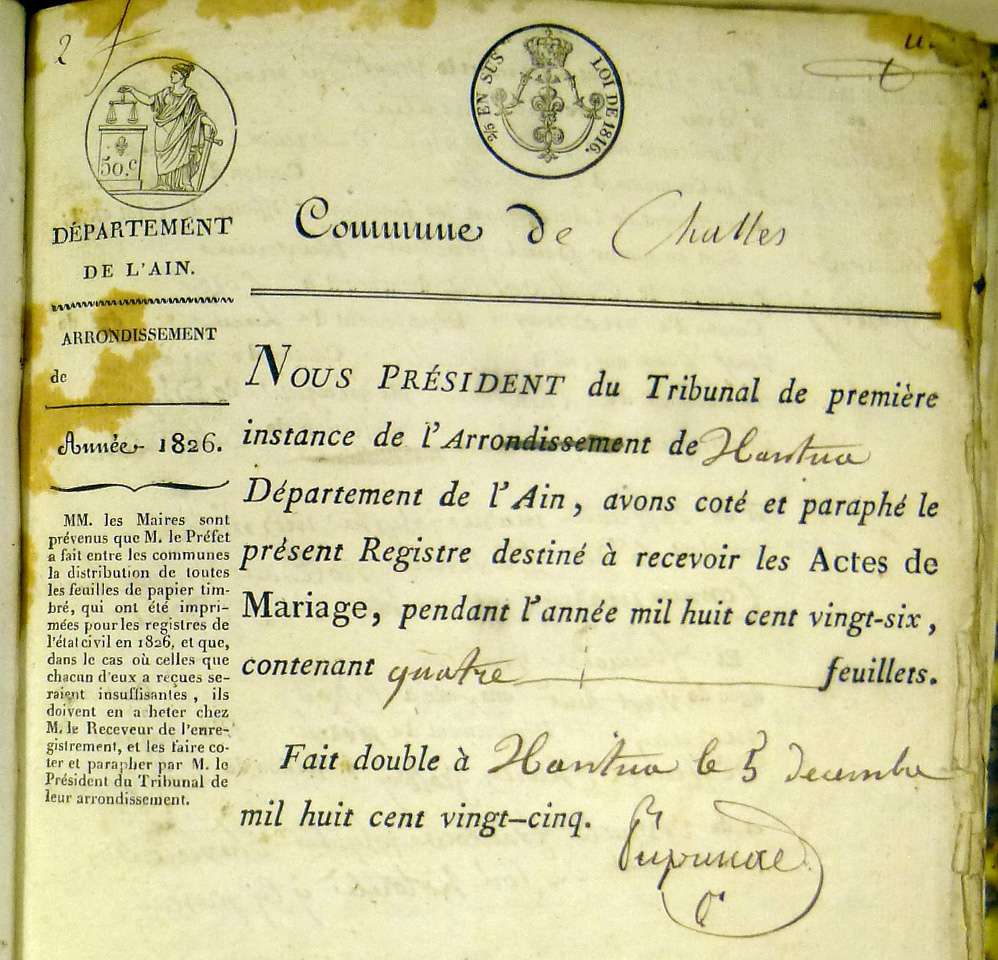 2
50.c
2/5 EN SUS LOI DE 1816.
DÉPARTEMENT
DE L'AIN.
ARRONDISSEMENT
de
Année 1826.
MM. les Maires sont
prévenus que M. le Préfet
a fait entre les communes
la distribution de toutes
les feuilles de papier tim-
bré, qui ont été impri-
mées pour les registres de
l'état civil en 1826, et que,
dans le cas où celles que
chacun d'eux a reçues se-
raient insuffisantes, ils
doivent en a heter chez
M. le Receveur de l'enre-
gistrement, et les faire co-
ter et parapher par M. le
Président du Tribunal de
leur arrondissement.
Commune de Challes
NOUS PRÉSIDENT du Tribunal de première
instance de l'Arrondissement de Nantua
Département de l'Ain, avons coté et paraphé le
présent Registre destiné à recevoir les Actes de
Mariage, pendant l'année mil huit cent vingt-six,
contenant quatre feuillets.
Fait double à Nantua le 5 decembre
mil huit cent vingt-cinq.